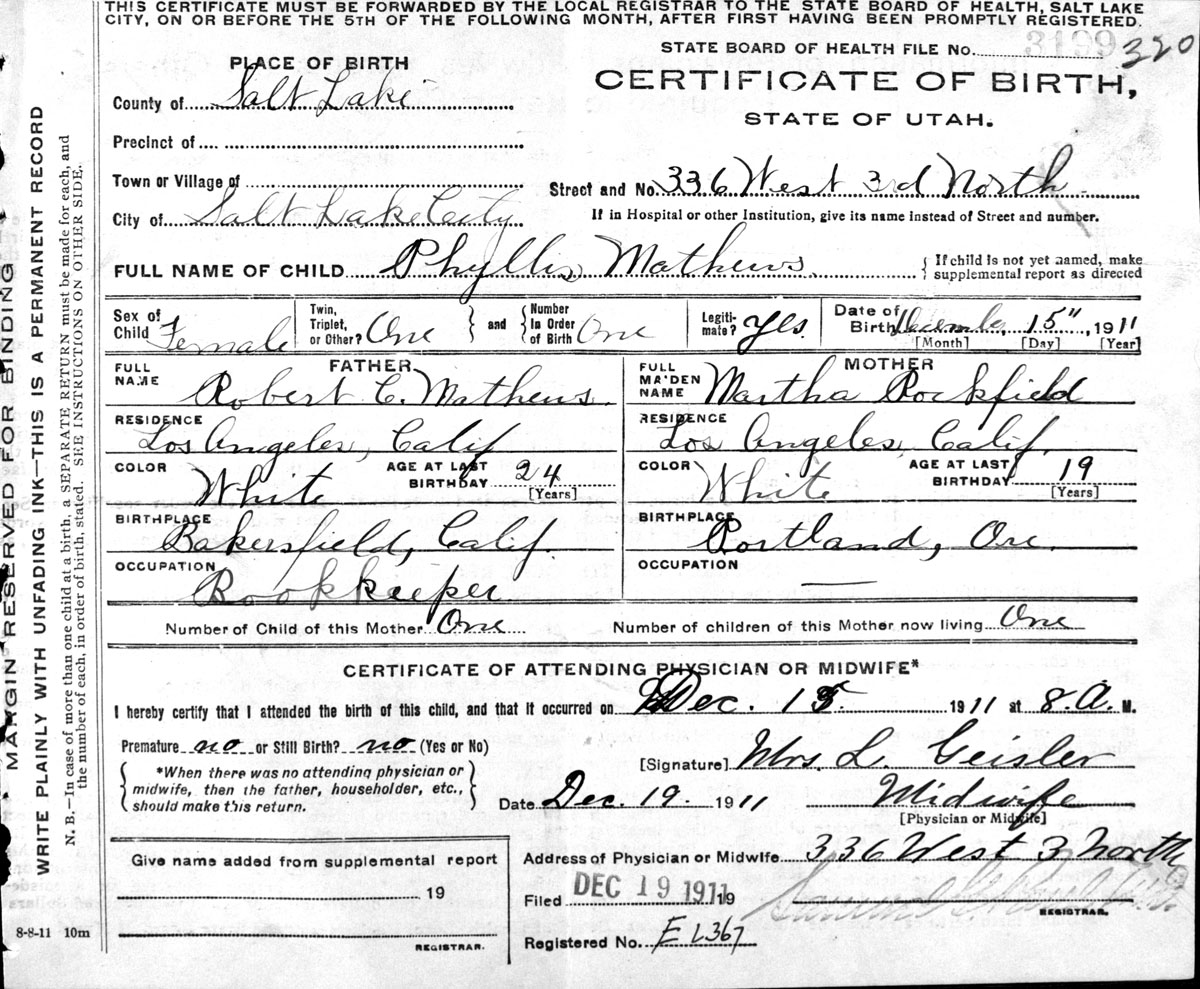 THIS CERTIFICATE MUST BE FORWARDED BY THE LOCAL REGISTRAR TO THE STATE BOARD OF HEALTH, SALT LAKE
CITY, ON OR BEFORE THE 5TH OF THE FOLLOWING MONTH, AFTER FIRST HAVING BEEN PROMPTLY REGISTERED.
STATE BOARD OF HEALTH FILE No. 3199 320
PLACE OF BIRTH
CERTIFICATE OF BIRTH,
STATE OF UTAH.
County of Salt Lake
Precinct of
Town or Village of
Street and No. 336 West 3rd North
City of Salt Lake City
If in Hospital or other Institution, give its name instead of Street and number.
FULL NAME OF CHILD Phyllis Mathews
{ If child is not yet named, make
supplemental report as directed
Sex of Child Female
Twin, Triplet, or Other? One } and { Number In Order of Birth One
Legiti-mate? Yes
Date of Birth December 15" 1911
[Month] [Day] [Year]
FATHER
FULL NAME Robert C. Mathews
MOTHER
FULL MAIDEN NAME Martha Rockfield
RESIDENCE Los Angeles, Calif.
RESIDENCE Los Angeles, Calif.
COLOR White
AGE AT LAST BIRTHDAY 24 [Years]
COLOR White
AGE AT LAST BIRTHDAY 19 [Years]
BIRTHPLACE Bakersfield, Calif.
BIRTHPLACE Portland, Ore.
OCCUPATION Bookkeeper
OCCUPATION —
Number of Child of this Mother One
Number of children of this Mother now living One
CERTIFICATE OF ATTENDING PHYSICIAN OR MIDWIFE*
I hereby certify that I attended the birth of this child, and that it occurred on Dec. 15. 1911 at 8. A. M.
Premature no or Still Birth? no (Yes or No)
{ *When there was no attending physician or
midwife, then the father, householder, etc.,
should make this return. }
[Signature] Mrs. L. Geisler
Date Dec. 19. 1911
Midwife
[Physician or Midwife]
Give name added from supplemental report
19
REGISTRAR.
Address of Physician or Midwife 336 West 3 North
Filed DEC 19 1911 19
REGISTRAR.
Registered No. E L367
8-8-11 10m
MARGIN RESERVED FOR BINDING
WRITE PLAINLY WITH UNFADING INK—THIS IS A PERMANENT RECORD
N. B.—In case of more than one child at a birth, a SEPARATE RETURN must be made for each, and
the number of each, in order of birth, stated. SEE INSTRUCTIONS ON OTHER SIDE.